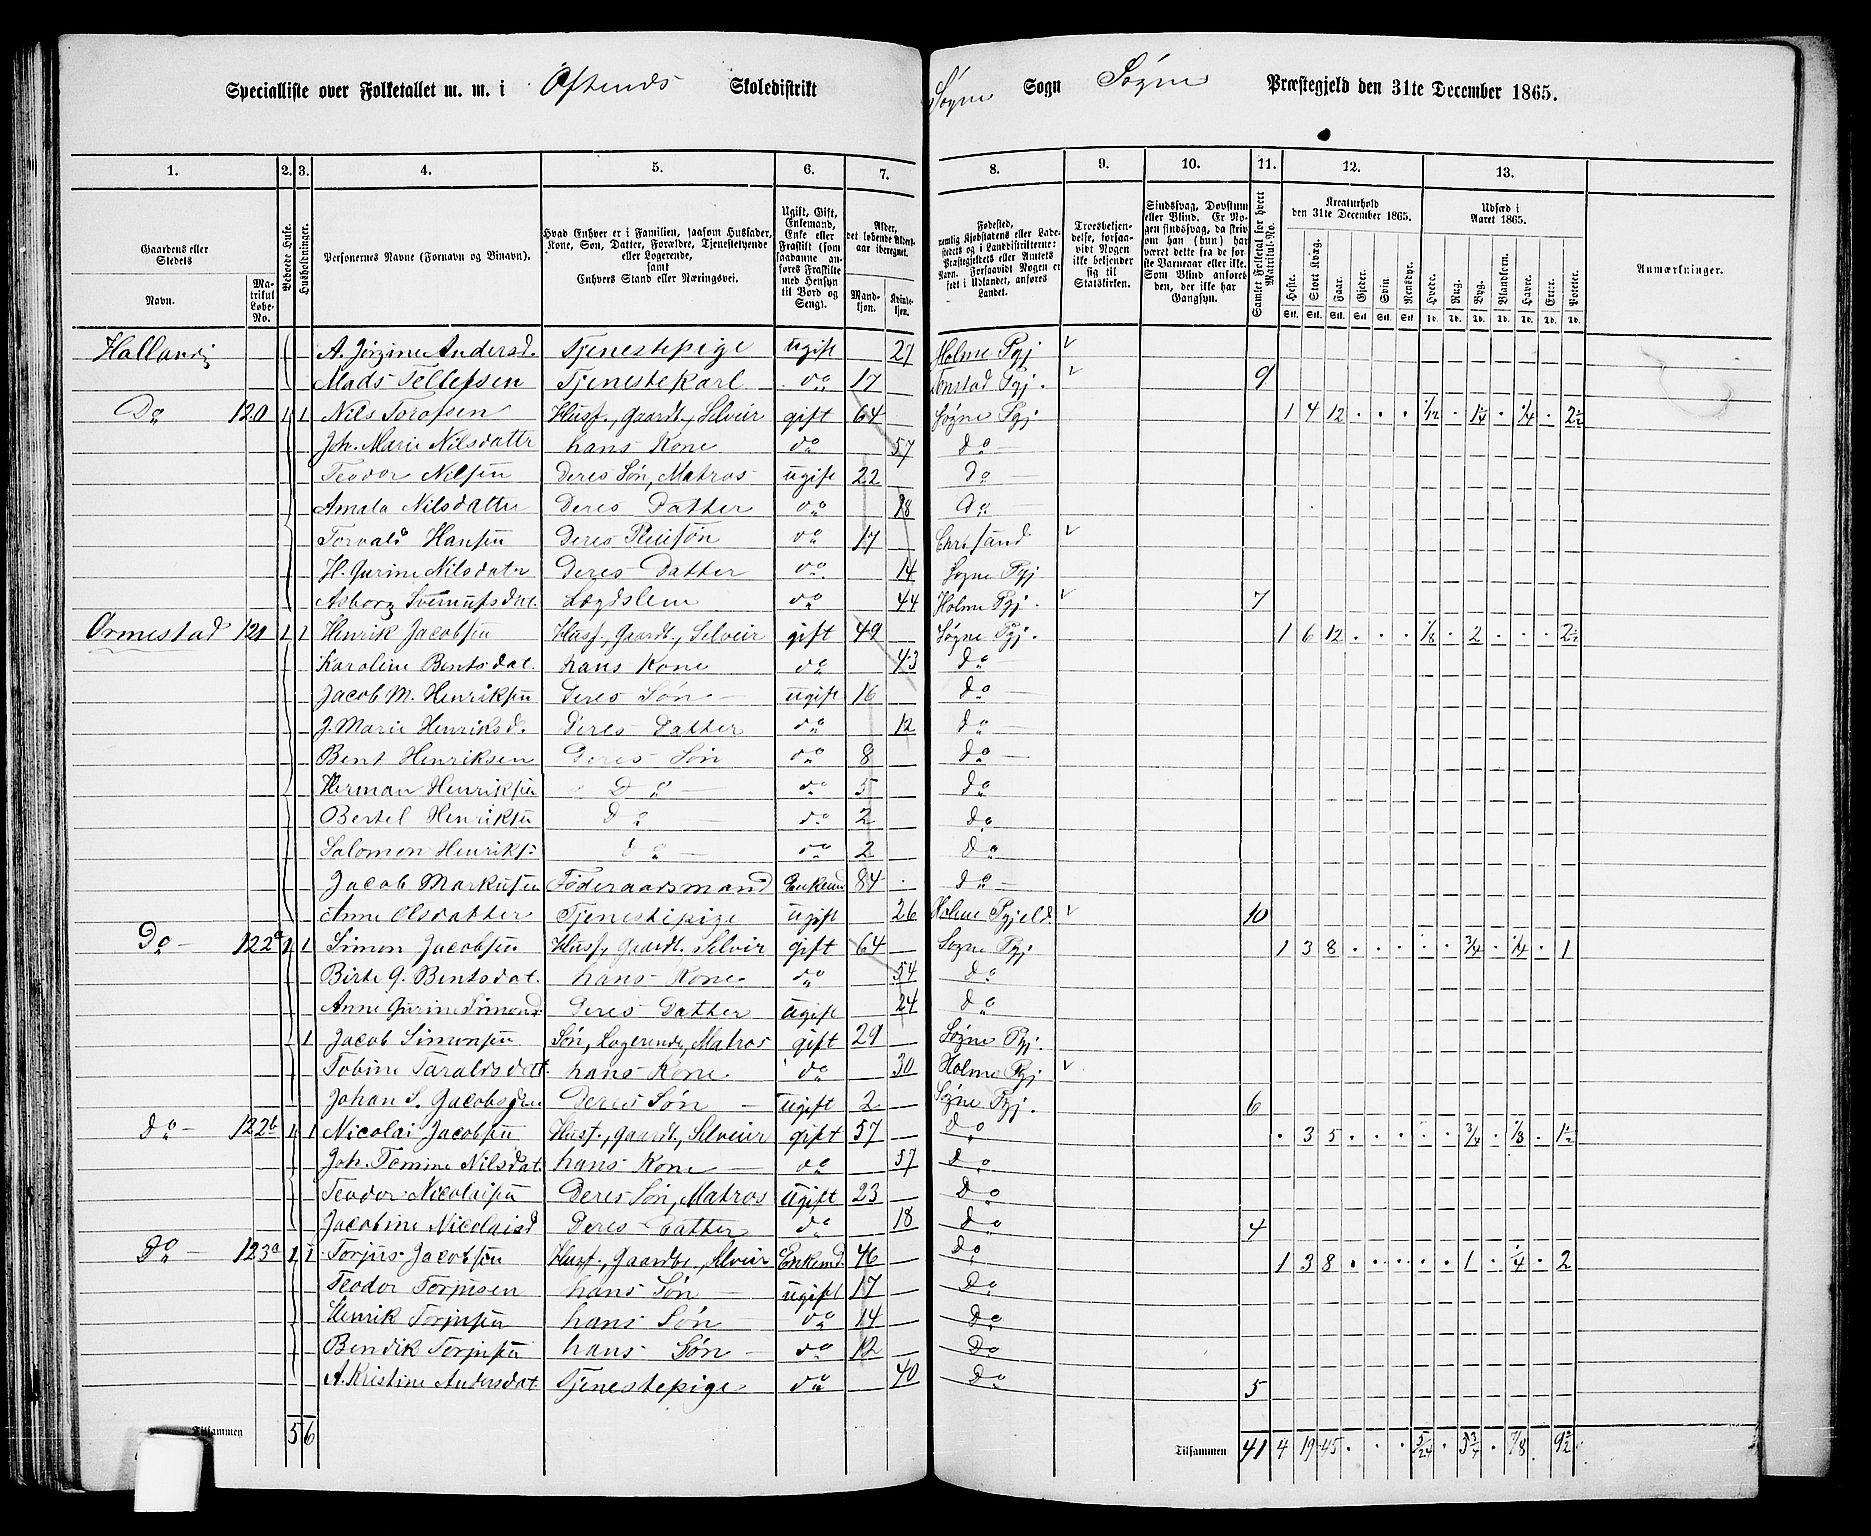 Specialliste over Folketallet m. m. i Øftenes Skoledistrikt Søgne Sogn Søgne Præstegjeld den 31te December 1865.
1. 2. 3. 4. 5. 6. 7. 8. 9. 10. 11. 12. 13.
Gaardens eller Stedets Navn. Matrikul Løbe-No. Beboede Huse. Husholdninger. Personernes Navne (Fornavn og Binavn). Hvad Enhver er i Familien, saasom Husfader, Kone, Søn, Datter, Forældre, Tjenestetyende eller Logerende, samt Enhvers Stand eller Næringsvei. Ugift, Gift, Enkemand, Enke eller Fraskilt (som saadanne anføres Fraskilte med Hensyn til Bord og Seng). Alder, det løbende Aldersaar iberegnet. Mandkjøn. Kvindekjøn.
Fødested, nemlig Kjøbstadens eller Ladestedets og i Landdistrikterne: Præstegjeldets eller Amtets Navn. Forsaavidt Nogen er født i Udlandet, anføres Landet. Troesbekjendelse, forsaavidt Nogen ikke bekjender sig til Statskirken. Sindssvag, Døvstum eller Blind. Er Nogen sindssvag, da skrives om han (hun) har været dette fra før sit Samlet Folketal for hvert Matrikul-No. Kreaturhold den 31te December 1865. Udsæd i Aaret 1865. Anmærkninger.
Heste. Stort Kvæg. Faar. Gjeder. Svin. Rensdyr. Hvede. Rug. Byg. Blandkorn. Havre. Erter. Poteter.
Hallandj A. Jørgine Andersd. Tjenestepige ugift 27 Holme Pgj v
Mads Tellefsen Tjenestekarl do 17 Pgj. v 9
Do 120 1 1 Nils Torafsen Husf., Gaardb., Selveir gift 64 Søgne Pgj 1 4 12 . . . 1/12 . 1 1/4 . 1/4 . 2 1/2
Joh. Marie Nilsdattr hans Kone do 57 do
Teodor Nilsen Deres Søn, Matros ugift 22 do
Amala Nilsdatter Deres Datter do 18 do
Torvald Hansen Deres Pleiesøn do 17 Chrs sand v
H. Gurine Nilsdatr Deres Datter do 14 Søgne Pgj
Asborg Lægdslem do 44 Holme Pgj. v 7
Ormestad 121 1 1 Henrik Jacobsen Husf, Gaardb., Selveir gift 49 Søgne Pgj. 1 6 12 . . . 1/8 . 2 . . . 2 1/2
Karoline Bentsdat. hans Kone do 43 do
Jacob M. Henriksen Deres Søn ugift 16 do
J. Marie Henriksd. Deres Datter do 12 do
Bent Henriksen Deres Søn do 8 do
Herman Henriksen Do do 5 do
Bertel Henriksen Do do 2 do
Salomon Henriks: do do 2 do
Jacob Markusen Føderaadsmand Enkemd 84 do
Anne Olsdatter Tjenestepige ugift 26 Holme Pgjeld v 10
Do 122a 1 1 Simon Jacobsen Husf, Gaardb. Selveir gift 64 Søgne Pgj 1 3 8 . . . . . 3/4 . 1/4 . 1
Birte G. Bentsdat. hans Kone do 54 do
Anne Gurine Simonsd Deres Datter ugift 24 do
1 Jacob Simonsen Søn, Logerende, Matros gift 29 Søgne Pgj.
Tobine Taraldsdatt hans Kone do 30 Holme Pgj v
Johan S. Jacobsen Deres Søn ugift 2 Søgne Pgj. 6
do 122b 1 1 Nicolai Jacobsen Husf., Gaardb., Selveier gift 57 do . 3 5 . . . . . 3/4 . 1/8 . 1 1/2
Joh. Tomine Nilsdat. hans Kone do 57 do
Teodor Nicolaisen Deres Søn, Matros ugift 23 do
Jacobine Nicolaisd Deres Datter do 18 do 4
Do 123a 1 1 Torjus Jacobsen Husf., Gaardbr, Selveir Enkemd. 46 do 1 3 8 . . . . . 1 . 1/4 . 2
Teodor Torjusen hans Søn ugift 17 do
Henrik Torjusen hans Søn do 14 do
Bendik Torjusen hans Søn do 12 Do
A. Kristine Andersdat. Tjenestepige do 40 do 5
Tilsammen 5 6 Tilsammen 41 4 19 45 . . . 5/24 . 5 3/4 . 7/8 . 9 1/2